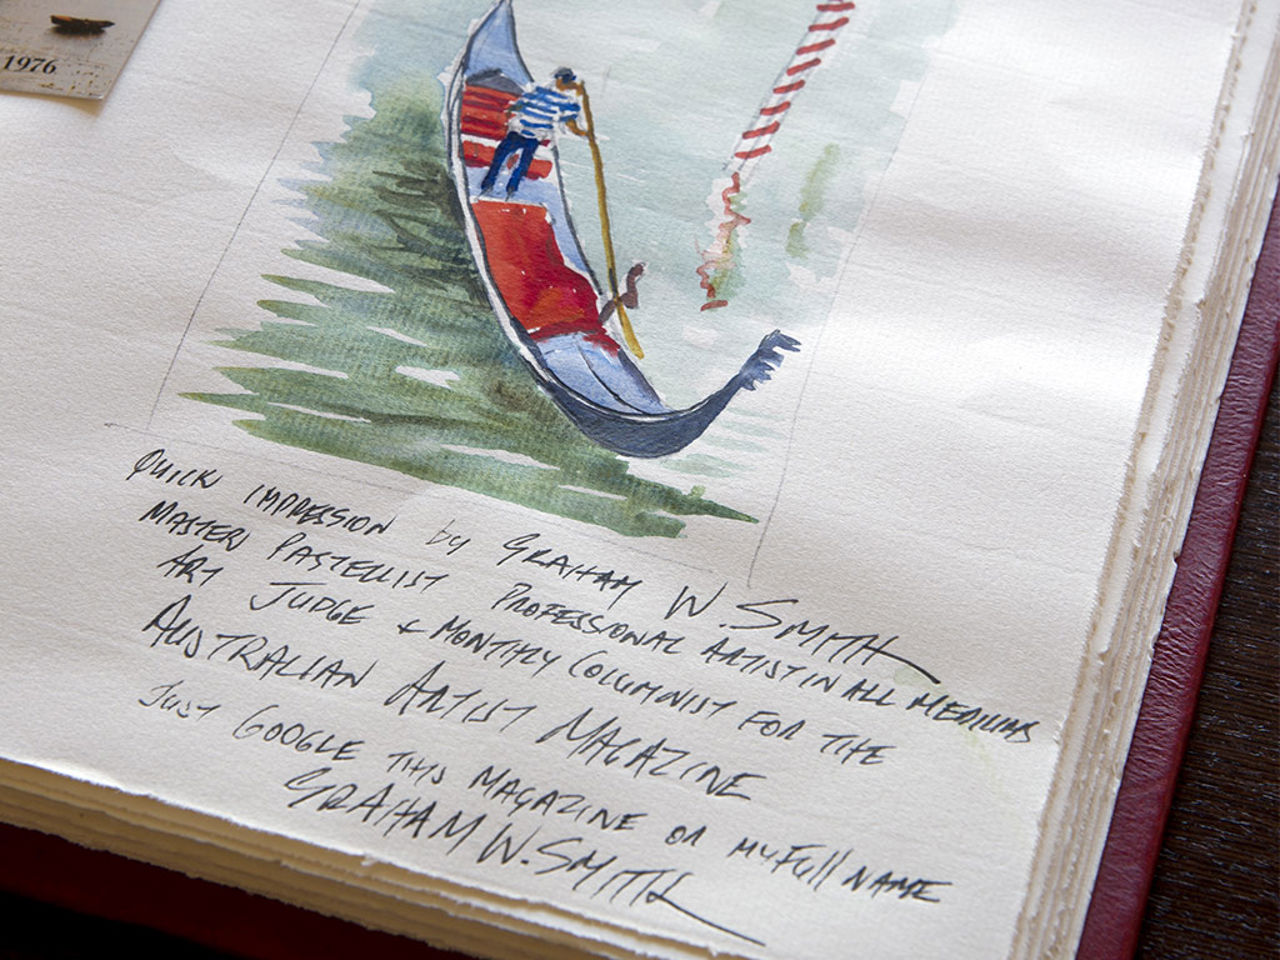 1976
QUICK IMPRESSION by GRAHAM W. SMITH
MASTER PASTELLIST PROFESSIONAL ARTIST IN ALL MEDIUMS
ART JUDGE + MONTHLY COLUMNIST FOR THE
AUSTRALIAN ARTIST MAGAZINE
JUST GOOGLE THIS MAGAZINE OR MY FULL NAME
GRAHAM W. SMITH